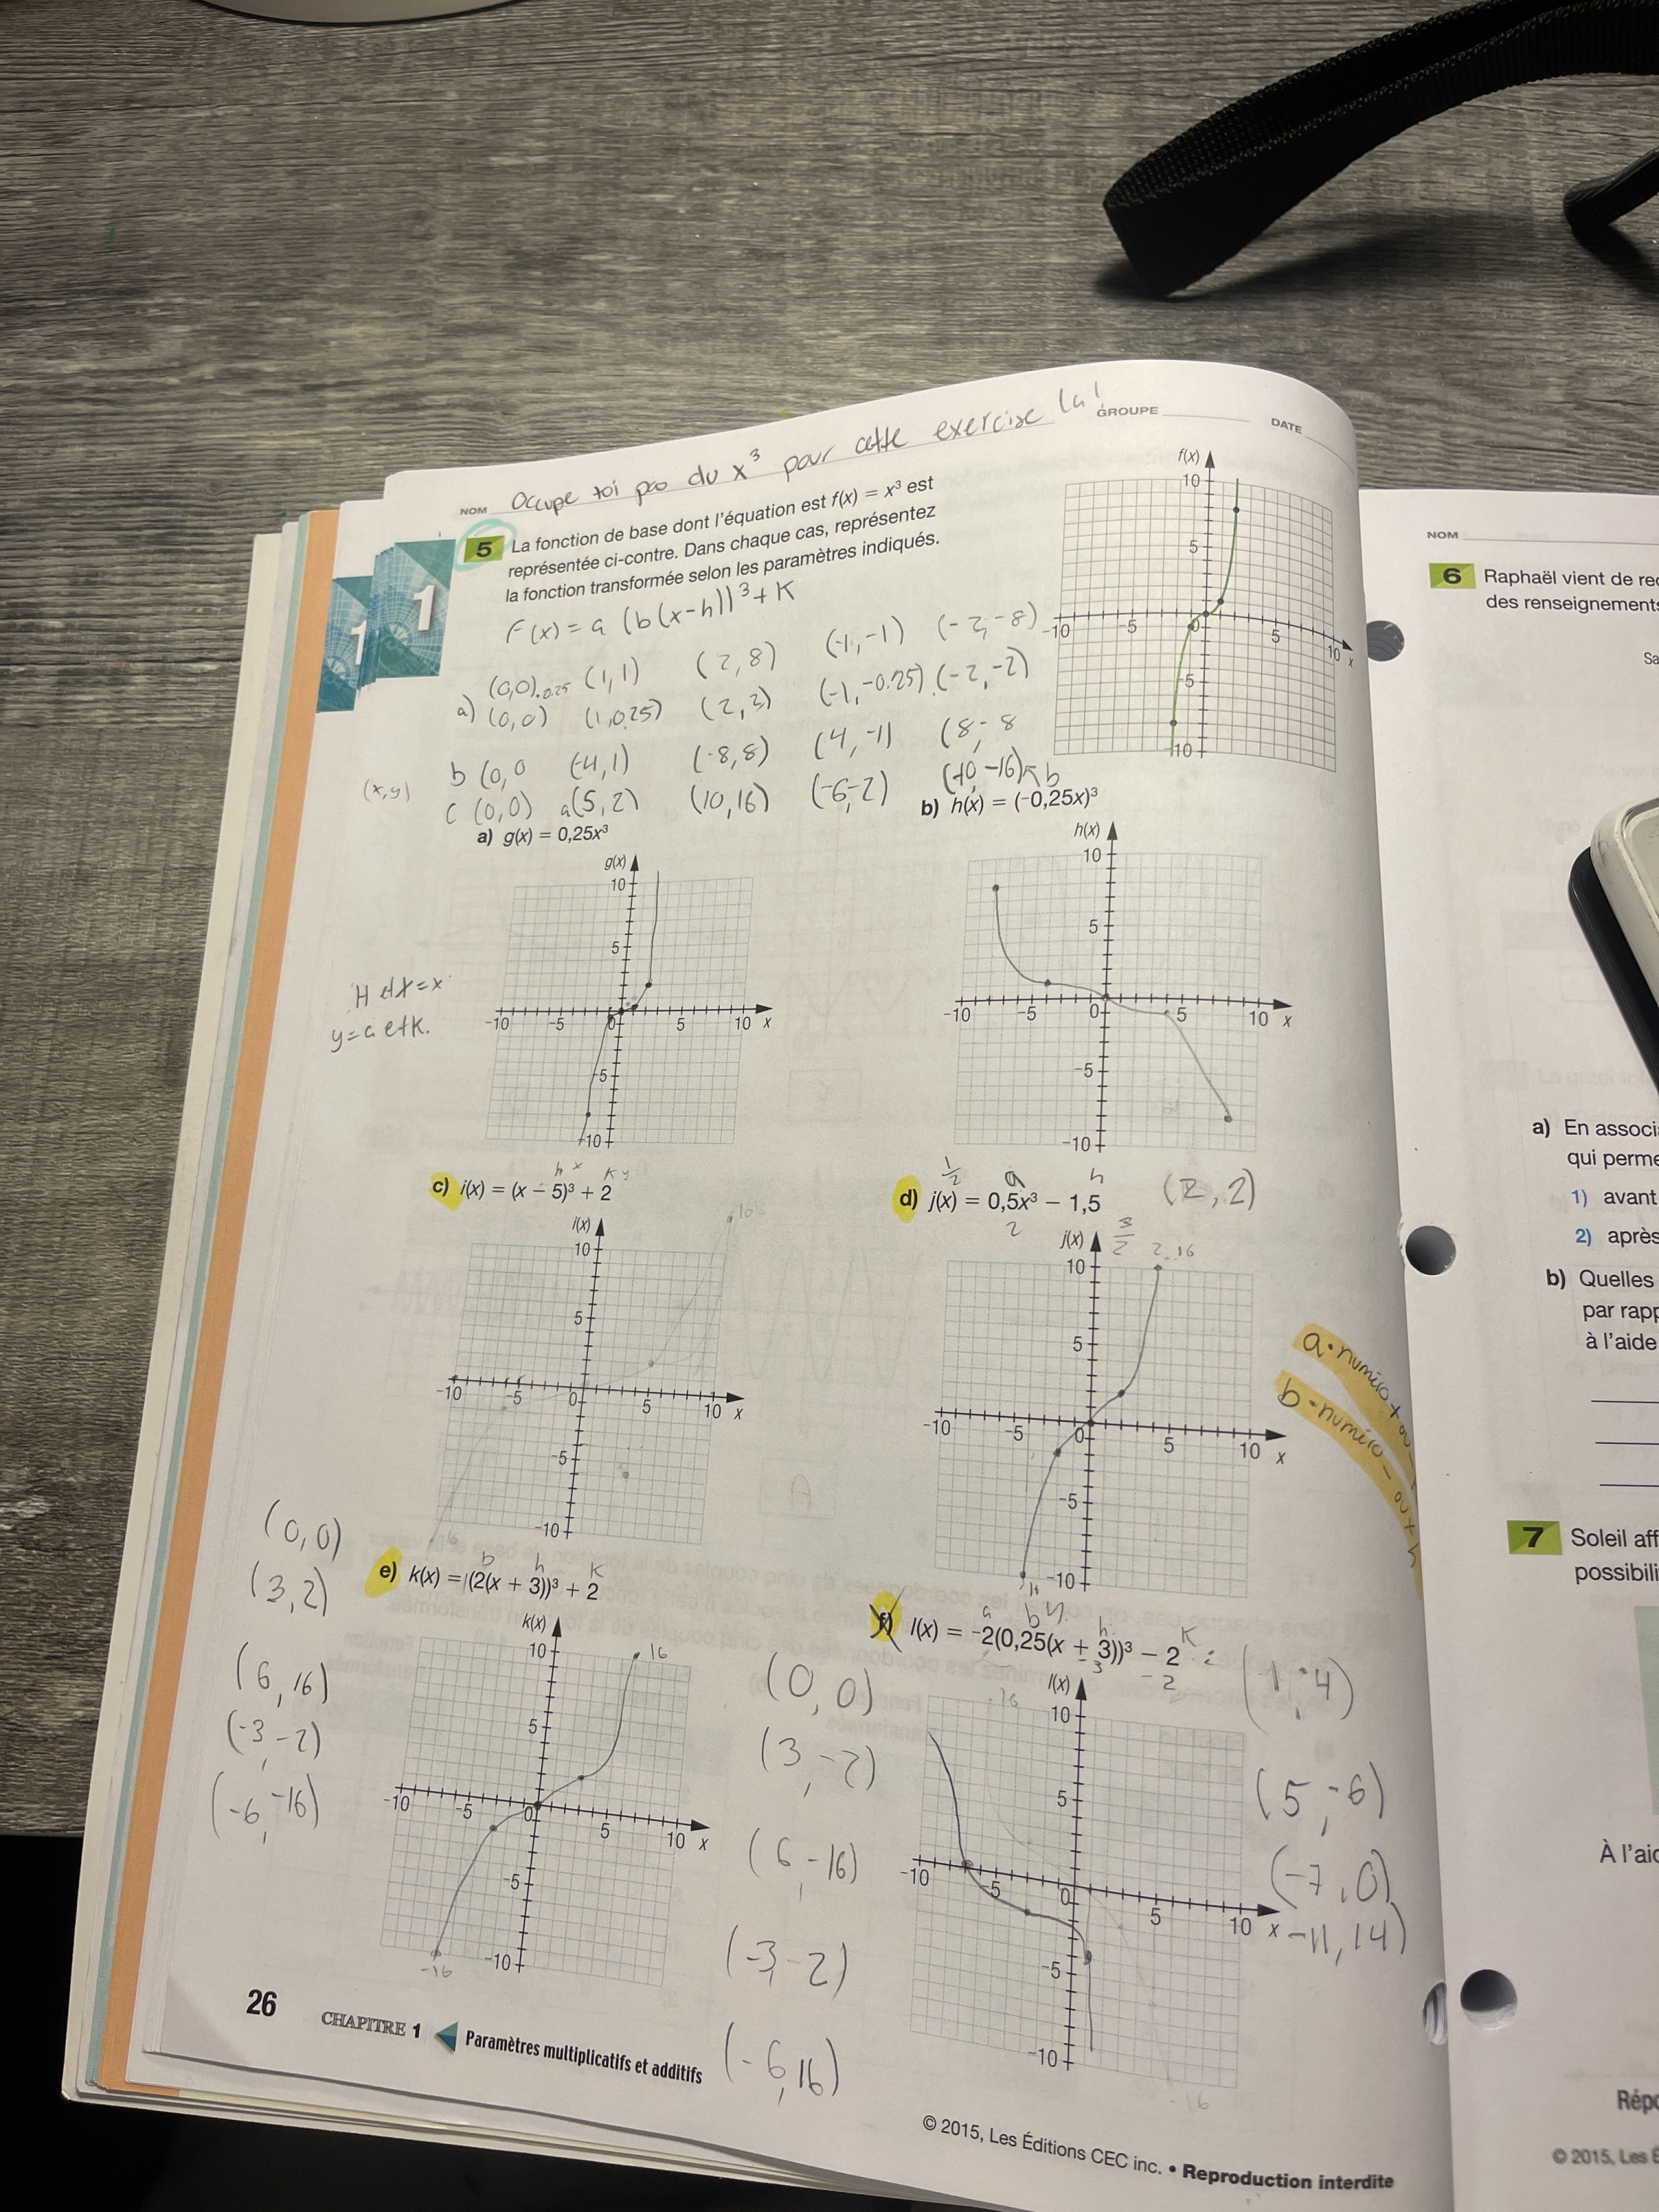 Occupe toi pas du x³ pour cette exercise la!
NOM
GROUPE
DATE
5 La fonction de base dont l'équation est f(x) = x³ est
représentée ci-contre. Dans chaque cas, représentez
la fonction transformée selon les paramètres indiqués.
F(x) = a (b(x-h))³ + K
(0,0) .0.25 (1,1) (2,8) (-1,-1) (-2,-8)
a) (0,0) (1,0.25) (2,2) (-1,-0.25) (-2,-2)
b (0,0 (-4,1) (-8,8) (4,-1) (8,-8
(x,y)
c (0,0) a(5,2) (10,16) (-6,-2) (-10,-16) b
f(x)
10
5
-10
-5
0
5
10
x
-5
-10
a) g(x) = 0,25x³
g(x)
10
5
-10
-5
0
5
10
x
-5
-10
H et x = x
y = a et K.
b) h(x) = (-0,25x)³
h(x)
10
5
-10
-5
0
5
10
x
-5
-10
h x K y
c) i(x) = (x – 5)³ + 2
i(x)
16
10
5
-10
-5
0
5
10
x
-5
-10
1/2 a h
d) j(x) = 0,5x³ – 1,5 (2,2)
2
3/2
j(x)
2.16
10
5
-10
-5
0
5
10
x
-5
-10
a • numéro + ou -
b - numéro - ou + h
(0,0)
(3,2)
(6,16)
(-3,-2)
(-6,-16)
b h K
e) k(x) = (2(x + 3))³ + 2
k(x)
16
10
5
-10
-5
0
5
10
x
-5
-10
-16
(0,0)
(3,-2)
(6,-16)
(-3,-2)
(-6,16)
a b h K
f) l(x) = -2(0,25(x + 3))³ – 2
-3
-2
l(x)
16
10
5
-10
-5
0
5
10
x
-5
-10
-16
(1,-4)
(5,-6)
(-7,0)
-11,14)
26
CHAPITRE 1 Paramètres multiplicatifs et additifs
© 2015, Les Éditions CEC inc. • Reproduction interdite
1
1
NOM
6 Raphaël vient de re
des renseignements
Sa
a) En associ
qui perme
1) avant
2) après
b) Quelles
par rapp
à l'aide
7 Soleil aff
possibili
À l'aid
Répo
© 2015, Les É